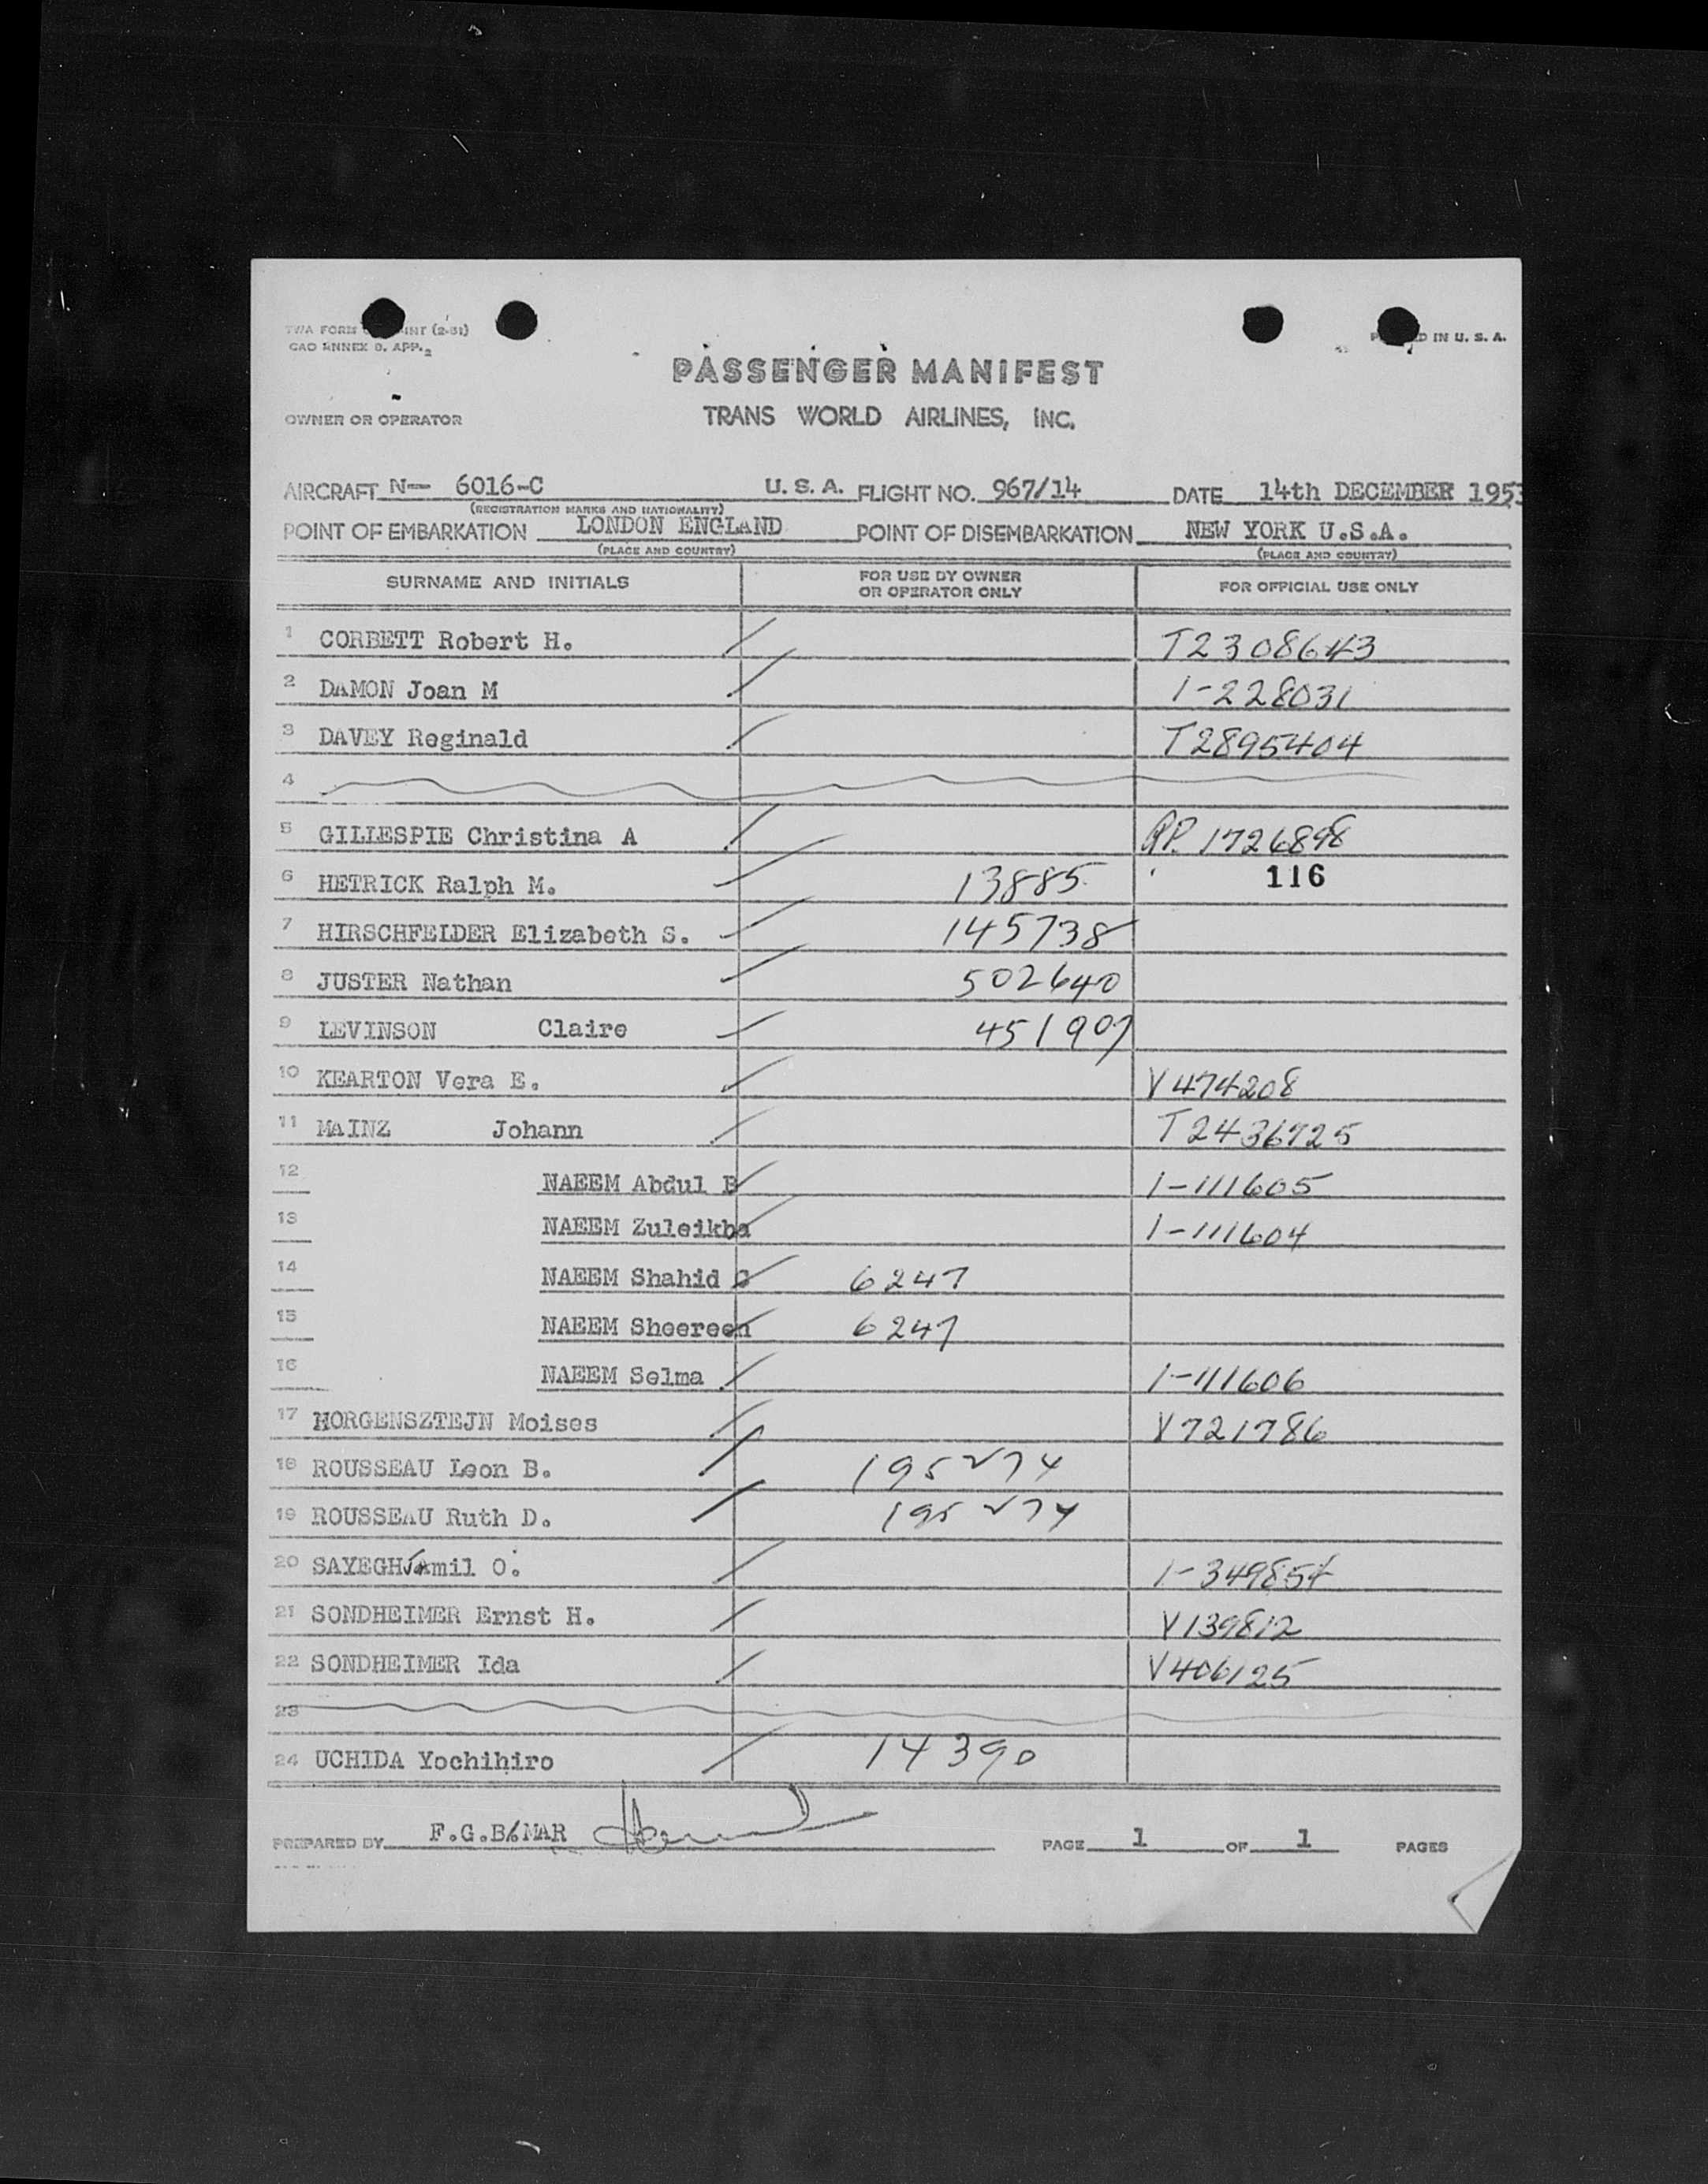 TWA FORM INT (2-51)
CAO ANNEX 9, APP. 2
IN U. S. A.
PASSENGER MANIFEST
OWNER OR OPERATOR
TRANS WORLD AIRLINES, INC.
AIRCRAFT N- 6016-C U. S. A. FLIGHT NO. 967/14 DATE 14th DECEMBER 1953
(REGISTRATION MARKS AND NATIONALITY)
POINT OF EMBARKATION LONDON ENGLAND POINT OF DISEMBARKATION NEW YORK U.S.A.
(PLACE AND COUNTRY) (PLACE AND COUNTRY)
SURNAME AND INITIALS FOR USE BY OWNER OR OPERATOR ONLY FOR OFFICIAL USE ONLY
1 CORBETT Robert H. T2308643
2 DAMON Joan M 1-228031
3 DAVEY Reginald T2895404
4
5 GILLESPIE Christina A RP. 1726898
6 HETRICK Ralph M. 13885 116
7 HIRSCHFELDER Elizabeth S. 145738
8 JUSTER Nathan 502640
9 LEVINSON Claire 451907
10 KEARTON Vera E. V474208
11 MAINZ Johann T2436725
12 NAEEM Abdul B 1-111605
13 NAEEM Zuleikba 1-111604
14 NAEEM Shahid G 6247
15 NAEEM Sheereen 6247
16 NAEEM Selma 1-111606
17 MORGENSZTEJN Moises V721786
18 ROUSSEAU Leon B. 195274
19 ROUSSEAU Ruth D. 195274
20 SAYEGH Jamil O. 1-349854
21 SONDHEIMER Ernst H. V139812
22 SONDHEIMER Ida V406125
23
24 UCHIDA Yochihiro 14390
PREPARED BY F.G. PAGE 1 OF 1 PAGES